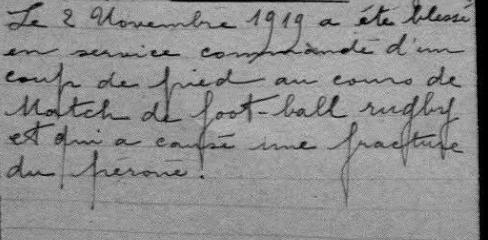 Le 2 Novembre 1919 a été blessé
en service commandé d'un
coup de pied au cours de
Match de foot-ball rugby
et qui a causé une fracture
du péroné.